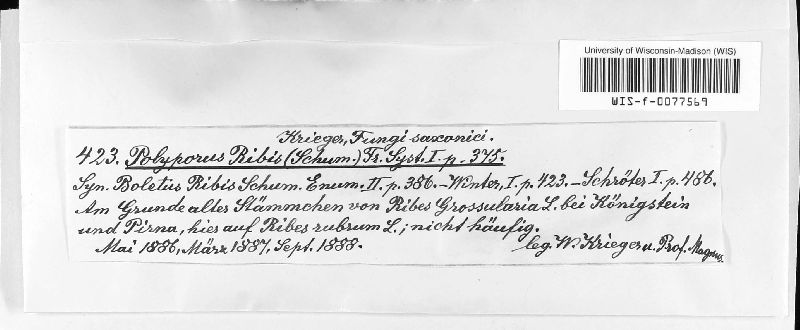 University of Wisconsin-Madison (WIS)
WIS-f-0077569
Krieger, Fungi saxonici.
423. Polyporus Ribis (Schum.) Fr. Syst. I. p. 375.
Syn. Boletus Ribis Schum. Enum. II. p. 386. – Winter, I. p. 423. – Schröter I. p. 486.
Am Grunde alter Stämmchen von Ribes Grossularia L. bei Königstein
und Pirna, hier auf Ribes rubrum L.; nicht häufig.
Mai 1886, März 1887, Sept. 1888.
leg. W. Krieger u. Prof. Magnus